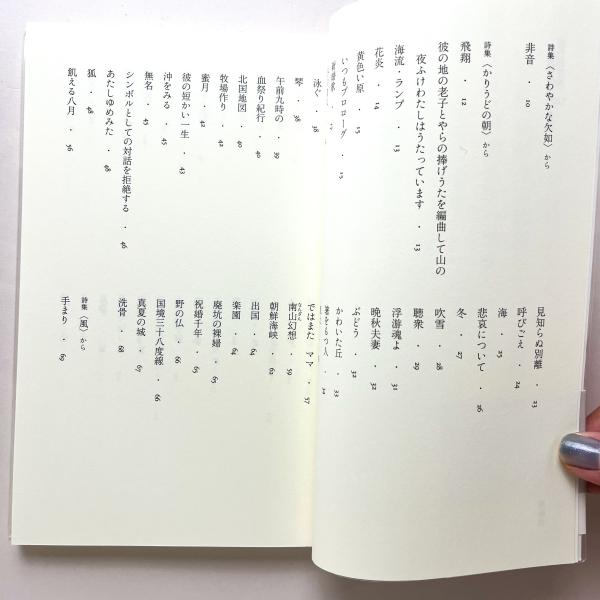 詩集〈さわやかな欠如〉から
非音・10
詩集〈かりうどの朝〉から
飛翔・12
彼の地の老子とやらの捧げうたを編曲して山の
夜ふけわたしはうたっています・13
海流・ランプ・13
花炎・14
黄色い原・15
いつもプロローグ・15
見知らぬ別離・23
呼びごえ・24
海・25
悲哀について・26
冬・27
吹雪・28
聴衆・29
浮游魂よ・31
晩秋夫妻・32
ぶどう・32
かわいた丘・33
をもつ人
泳ぐ・38
琴・38
午前九時の・39
血祭り紀行・40
北国地図・40
牧場作り・42
蜜月・42
彼の短かい一生・43
沖をみる・45
無名・45
シンボルとしての対話を拒絶する・46
あたしゆめみた・48
狐・48
飢える八月・56
ではまた ママ・57
南山幻想・59
朝鮮海峡・62
出国・62
楽園・64
廃坑の裸婦・64
祝婚千年・65
野の仏・66
国境三十八度線・66
真夏の城・67
洗骨・68
詩集〈風〉から
手まり・69